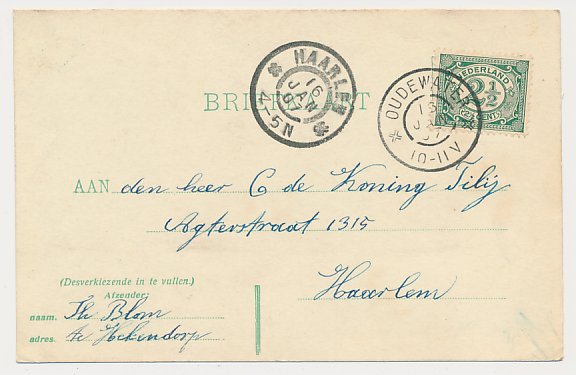 NEDERLAND
2½
CENT
HAARLEM
16
JAN
07
4-5N
OUDEWATER
JAN
07
10-11V
BRIEFKAART
AAN den heer C de Koning Tilij
Agterstraat 1315
Haarlem
(Desverkiezende in te vullen.)
Afzender:
naam. Th Blom
adres. te Hekendorp